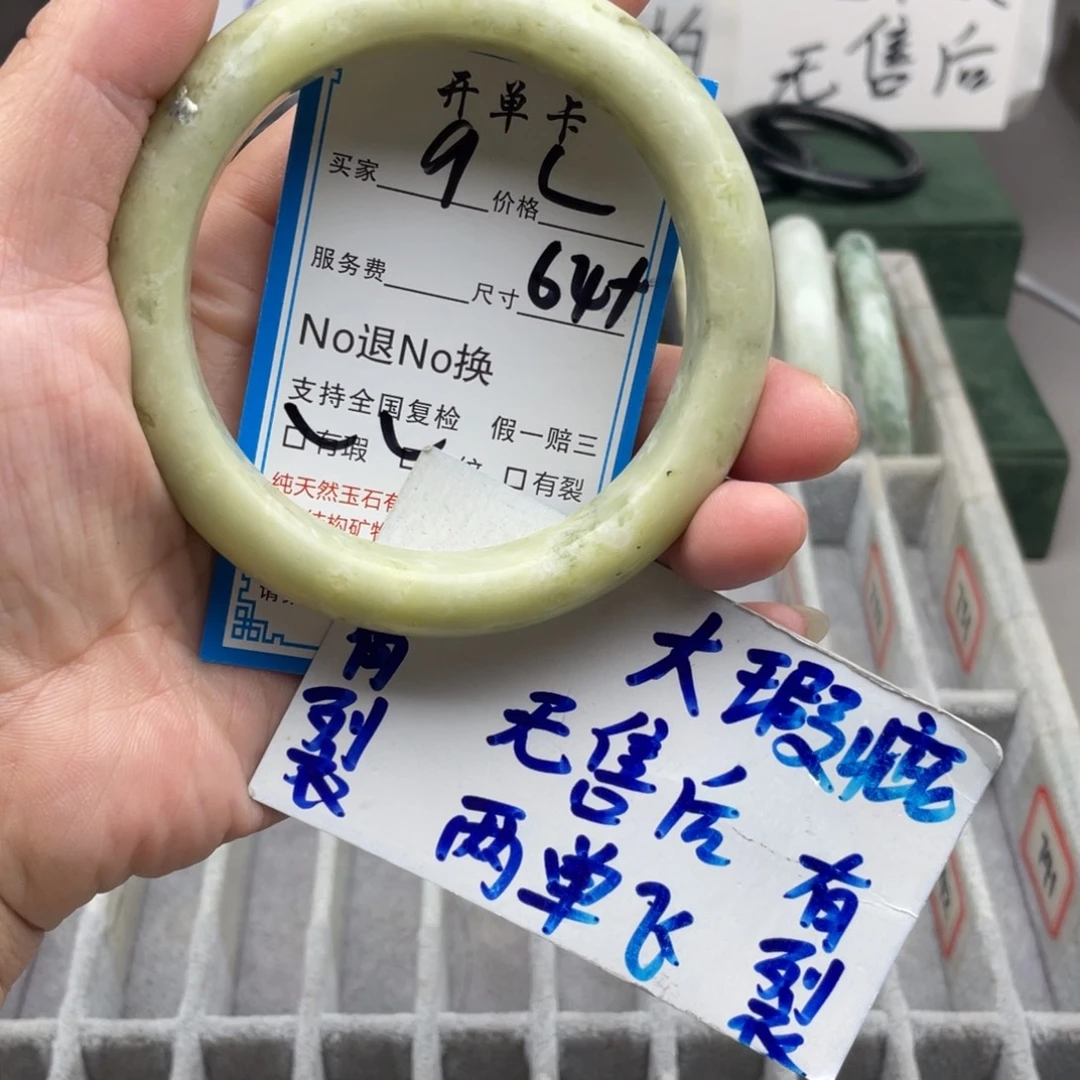 无售后
开单卡
买家 9 价格
服务费 尺寸 64+
No退No换
支持全国复检 假一赔三
口有瑕 纹 口有裂
纯天然玉石有
结构矿物
请
大瑕疵
无售后
两单飞
有裂
有裂